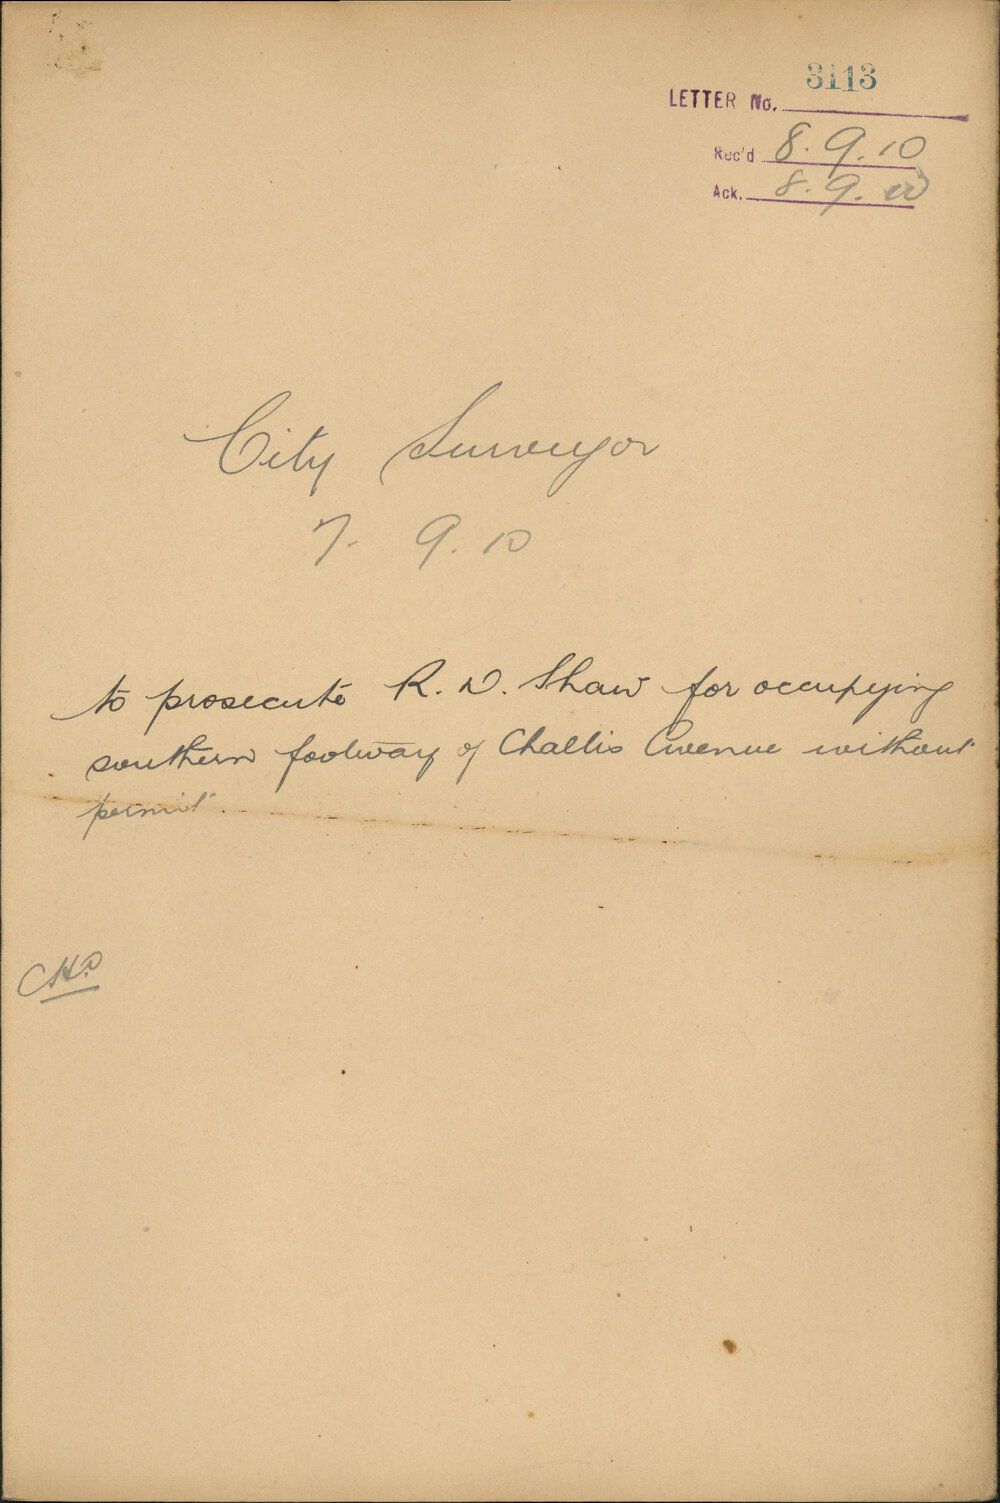 3113
LETTER No.
Rec'd 8.9.10
Ack. 8.9.10
City Surveyor
7. 9. 10
to prosecute R. D. Shaw for occupying
southern footway of Challis Avenue without
permit.